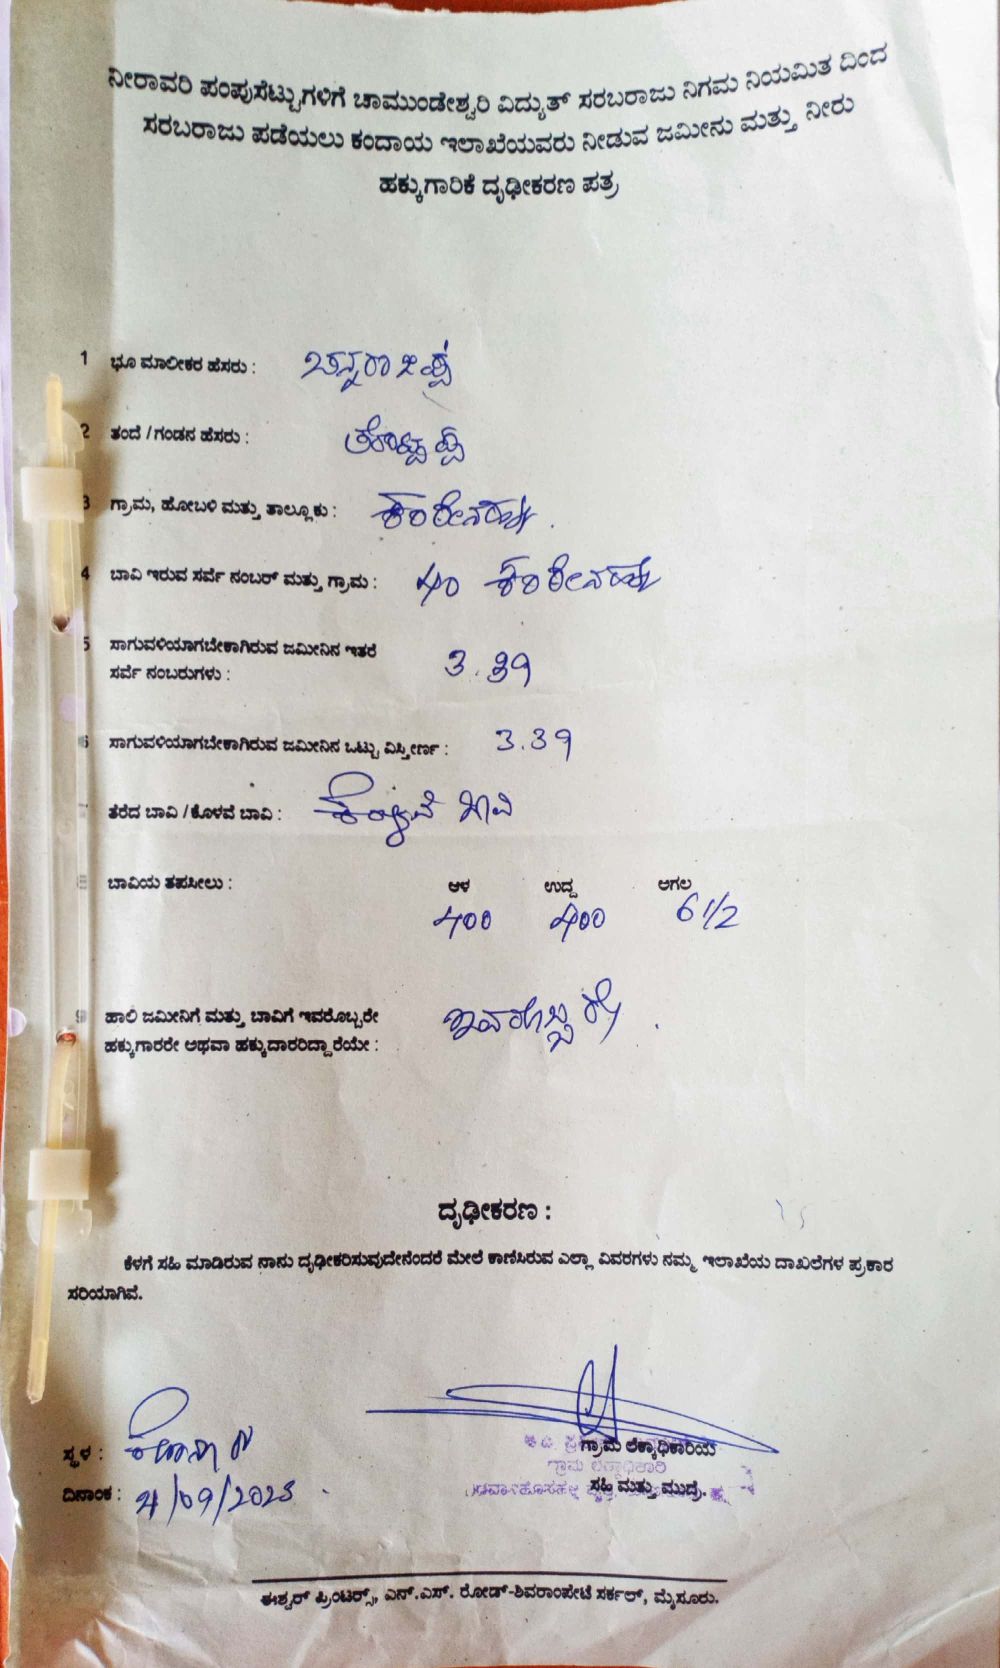 ನೀರಾವರಿ ಪಂಪುಸೆಟ್ಟುಗಳಿಗೆ ಚಾಮುಂಡೇಶ್ವರಿ ವಿದ್ಯುತ್ ಸರಬರಾಜು ನಿಗಮ ನಿಯಮಿತ ದಿಂದ
ಸರಬರಾಜು ಪಡೆಯಲು ಕಂದಾಯ ಇಲಾಖೆಯವರು ನೀಡುವ ಜಮೀನು ಮತ್ತು ನೀರು
ಹಕ್ಕುಗಾರಿಕೆ ದೃಢೀಕರಣ ಪತ್ರ
1 ಭೂ ಮಾಲೀಕರ ಹೆಸರು :
2 ತಂದೆ / ಗಂಡನ ಹೆಸರು :
3 ಗ್ರಾಮ, ಹೋಬಳಿ ಮತ್ತು ತಾಲ್ಲೂಕು :
4 ಬಾವಿ ಇರುವ ಸರ್ವೆ ನಂಬರ್ ಮತ್ತು ಗ್ರಾಮ : 40
5 ಸಾಗುವಳಿಯಾಗಬೇಕಾಗಿರುವ ಜಮೀನಿನ ಇತರೆ
ಸರ್ವೆ ನಂಬರುಗಳು : 3.39
6 ಸಾಗುವಳಿಯಾಗಬೇಕಾಗಿರುವ ಜಮೀನಿನ ಒಟ್ಟು ವಿಸ್ತೀರ್ಣ : 3.39
ತೆರೆದ ಬಾವಿ / ಕೊಳವೆ ಬಾವಿ : ಕೊಳವೆ ಬಾವಿ
ಬಾವಿಯ ತಪಸೀಲು : ಆಳ ಉದ್ದ ಅಗಲ
400 400 6 1/2
9 ಹಾಲಿ ಜಮೀನಿಗೆ ಮತ್ತು ಬಾವಿಗೆ ಇವರೊಬ್ಬರೇ
ಹಕ್ಕುಗಾರರೇ ಅಥವಾ ಹಕ್ಕುದಾರರಿದ್ದಾರೆಯೇ : ಇವರೊಬ್ಬರೇ
ದೃಢೀಕರಣ :
ಕೆಳಗೆ ಸಹಿ ಮಾಡಿರುವ ನಾನು ದೃಢೀಕರಿಸುವುದೇನೆಂದರೆ ಮೇಲೆ ಕಾಣಿಸಿರುವ ಎಲ್ಲಾ ವಿವರಗಳು ನಮ್ಮ ಇಲಾಖೆಯ ದಾಖಲೆಗಳ ಪ್ರಕಾರ
ಸರಿಯಾಗಿವೆ.
ಸ್ಥಳ :
ಗ್ರಾಮ ಲೆಕ್ಕಾಧಿಕಾರಿಯ
ಗ್ರಾಮ ಲೆಕ್ಕಾಧಿಕಾರಿ
ದಿನಾಂಕ : 21/09/2023
ಸಹಿ ಮತ್ತು ಮುದ್ರೆ.
ಈಶ್ವರ್ ಪ್ರಿಂಟರ್ಸ್, ಎನ್.ಎಸ್. ರೋಡ್-ಶಿವರಾಂಪೇಟೆ ಸರ್ಕಲ್, ಮೈಸೂರು.